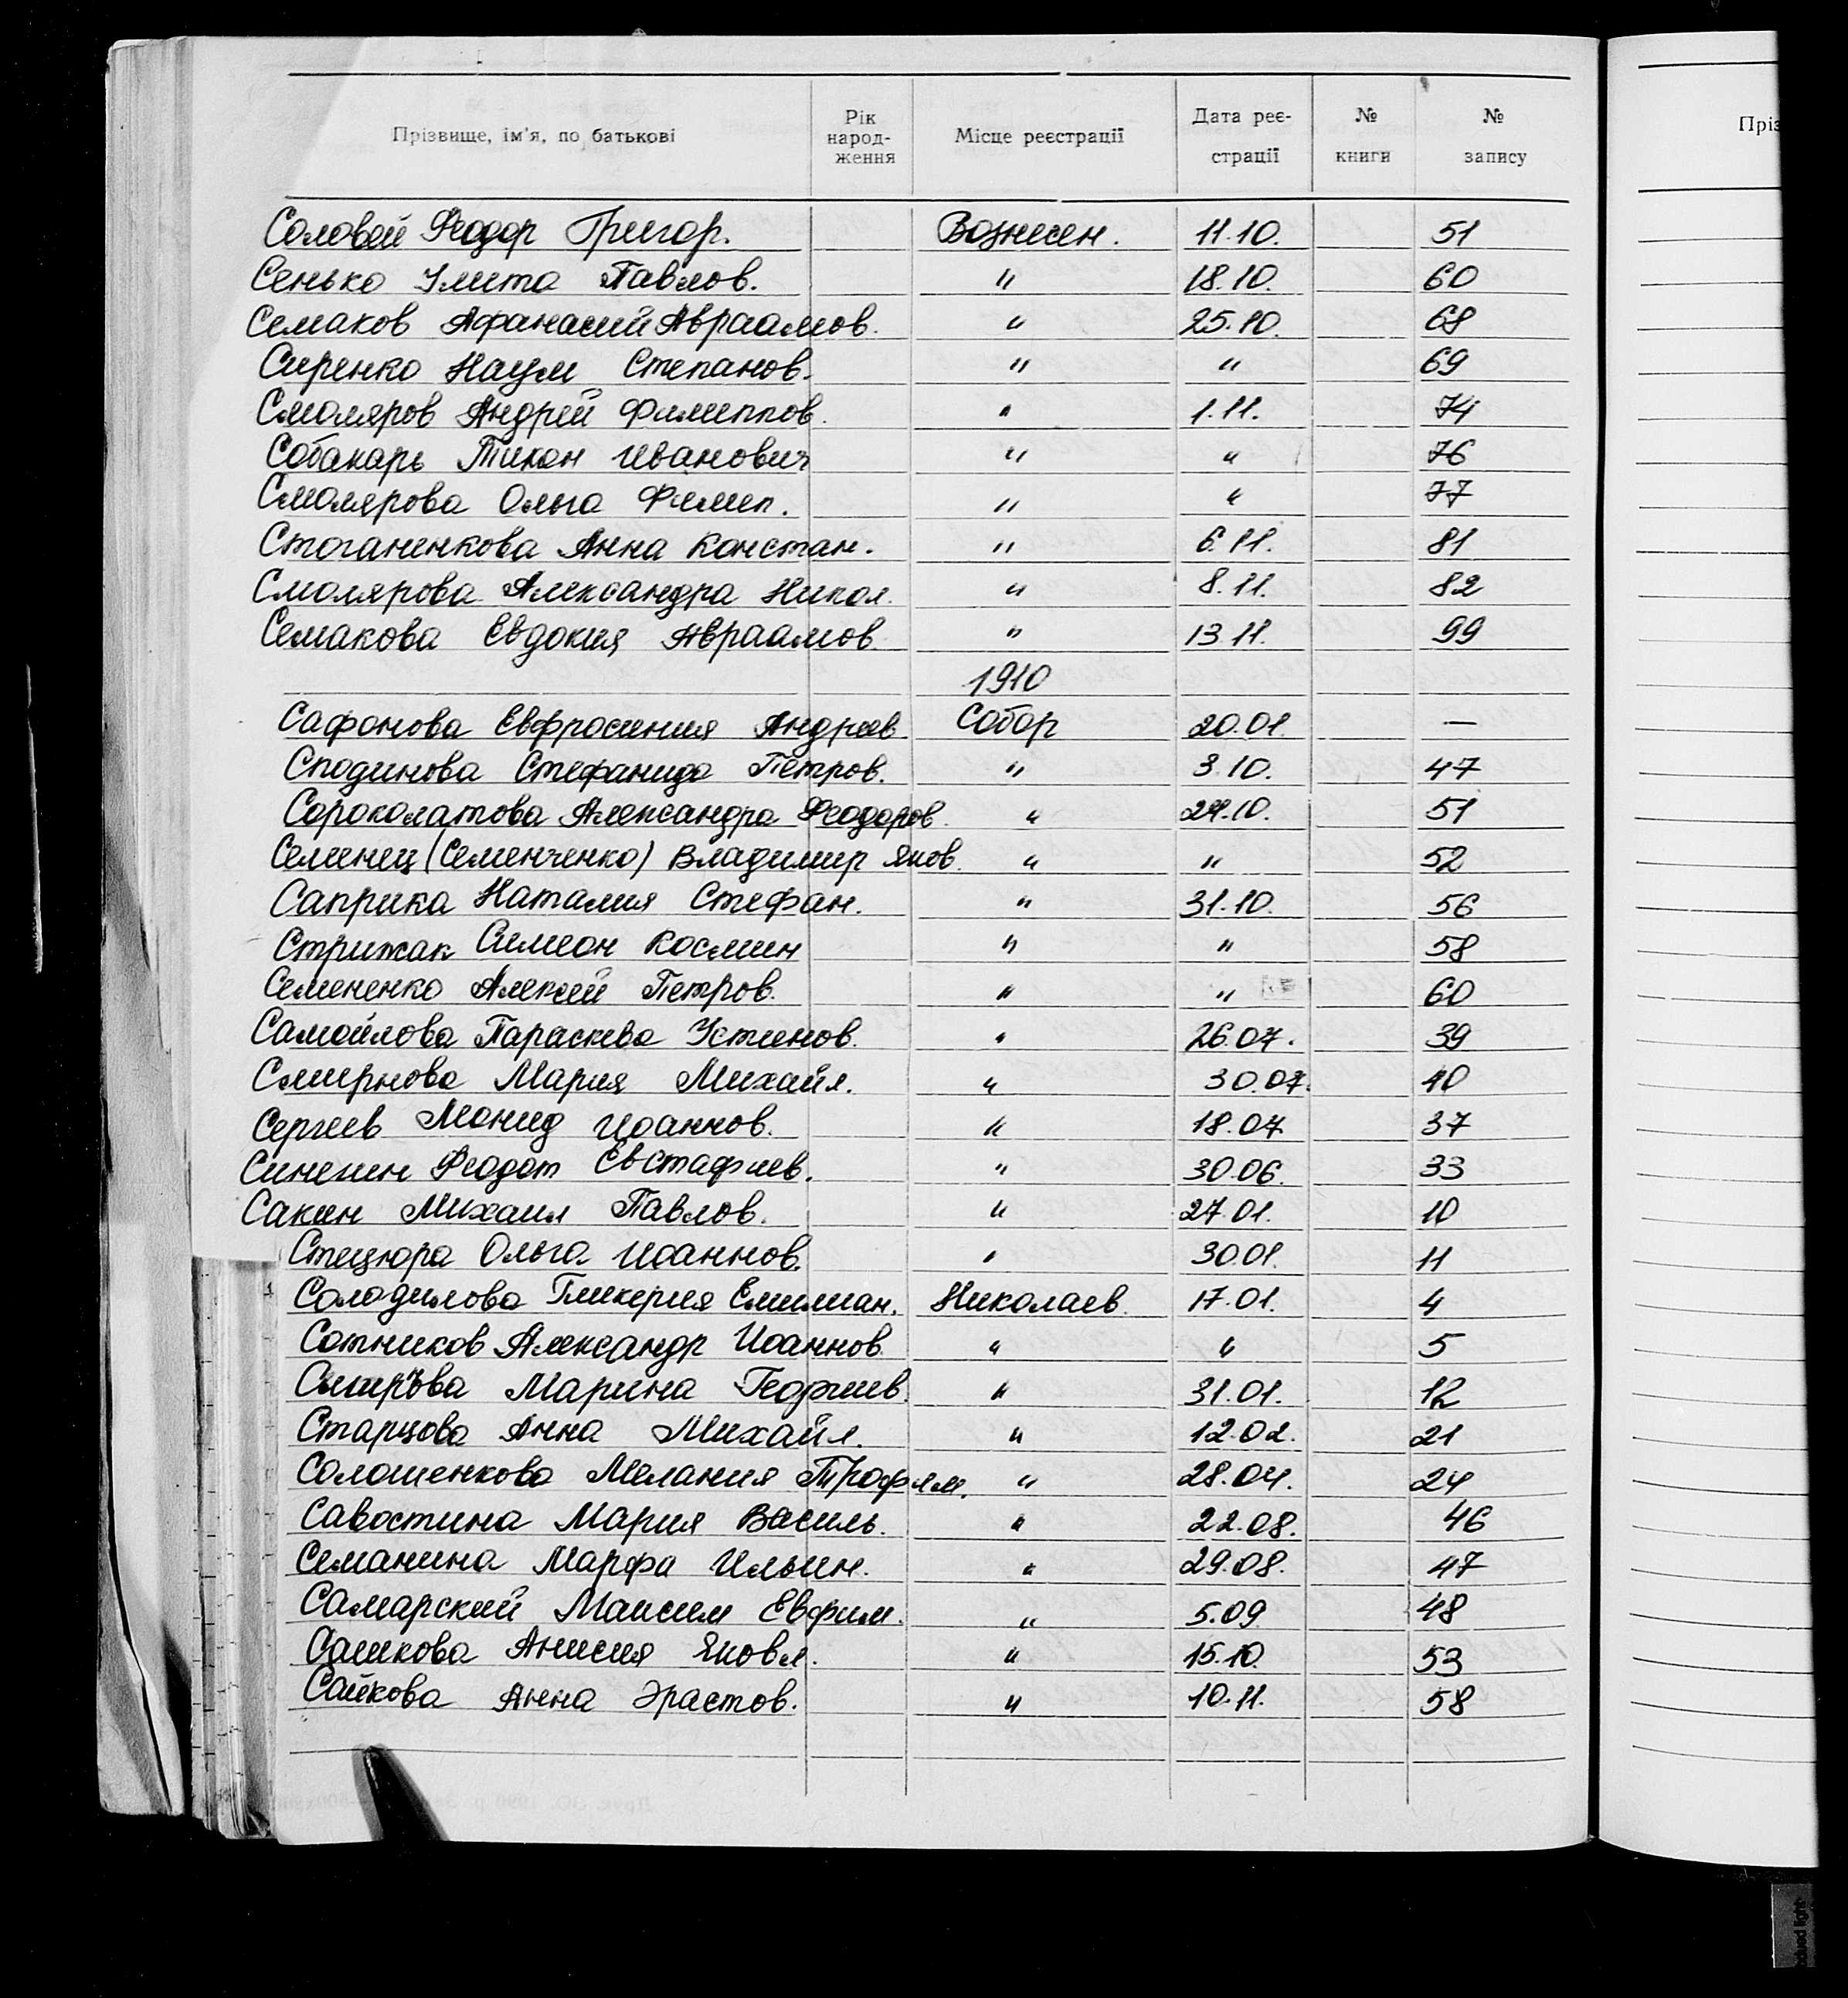 Прізвище, ім'я, по батькові Рік народження Місце реєстрації Дата реєстрації № книги № запису Пріз
Соловей Феодор Григор. Вознесен. 11.10. 51
Сенько Улита Павлов. " 18.10. 60
Семаков Афанасий Авраамов. " 25.10. 68
Сиренко Наум Степанов. " " 69
Смоляров Андрей Филиппов. " 1.11. 74
Собакарь Тихон Иванович " " 76
Смолярова Ольга Филип. " " 77
Стоганенкова Анна Констан. " 6.11. 81
Смолярова Александра Никол. " 8.11. 82
Семакова Евдокия Авраамов. " 13.11. 99
1910
Сафонова Евфросиния Андреев. Собор 20.01. —
Сподинова Стефанида Петров. " 3.10. 47
Сороколатова Александра Феодоров. " 24.10. 51
Семинец (Семенченко) Владимир Яков. " " 52
Саприка Наталия Стефан. " 31.10. 56
Стрижак Симеон Космин " " 58
Семененко Алексей Петров. " " 60
Самойлова Параскева Устинов. " 26.07. 39
Смирнова Мария Михайл. " 30.07. 40
Сергеев Леонид Иоаннов. " 18.07. 37
Феодот Евстафиев. " 30.06. 33
Сакин Михаил Павлов. " 27.01. 10
Стецюра Ольга Иоаннов. " 30.01. 11
Солодилова Гликерия Емилиан. Николаев. 17.01. 4
Сотников Александр Иоаннов. " " 5
Марина Георгиев. " 31.01. 12
Старцова Анна Михайл. " 12.02. 21
Солошенкова Мелания Трофим. " 28.04. 24
Савостина Мария Василь. " 22.08. 46
Семанина Марфа Ильин. " 29.08. 47
Самарский Максим Евфим. " 5.09. 48
Сашкова Анисия Яковл. " 15.10. 53
Сайкова Анна Эрастов. " 10.11. 58